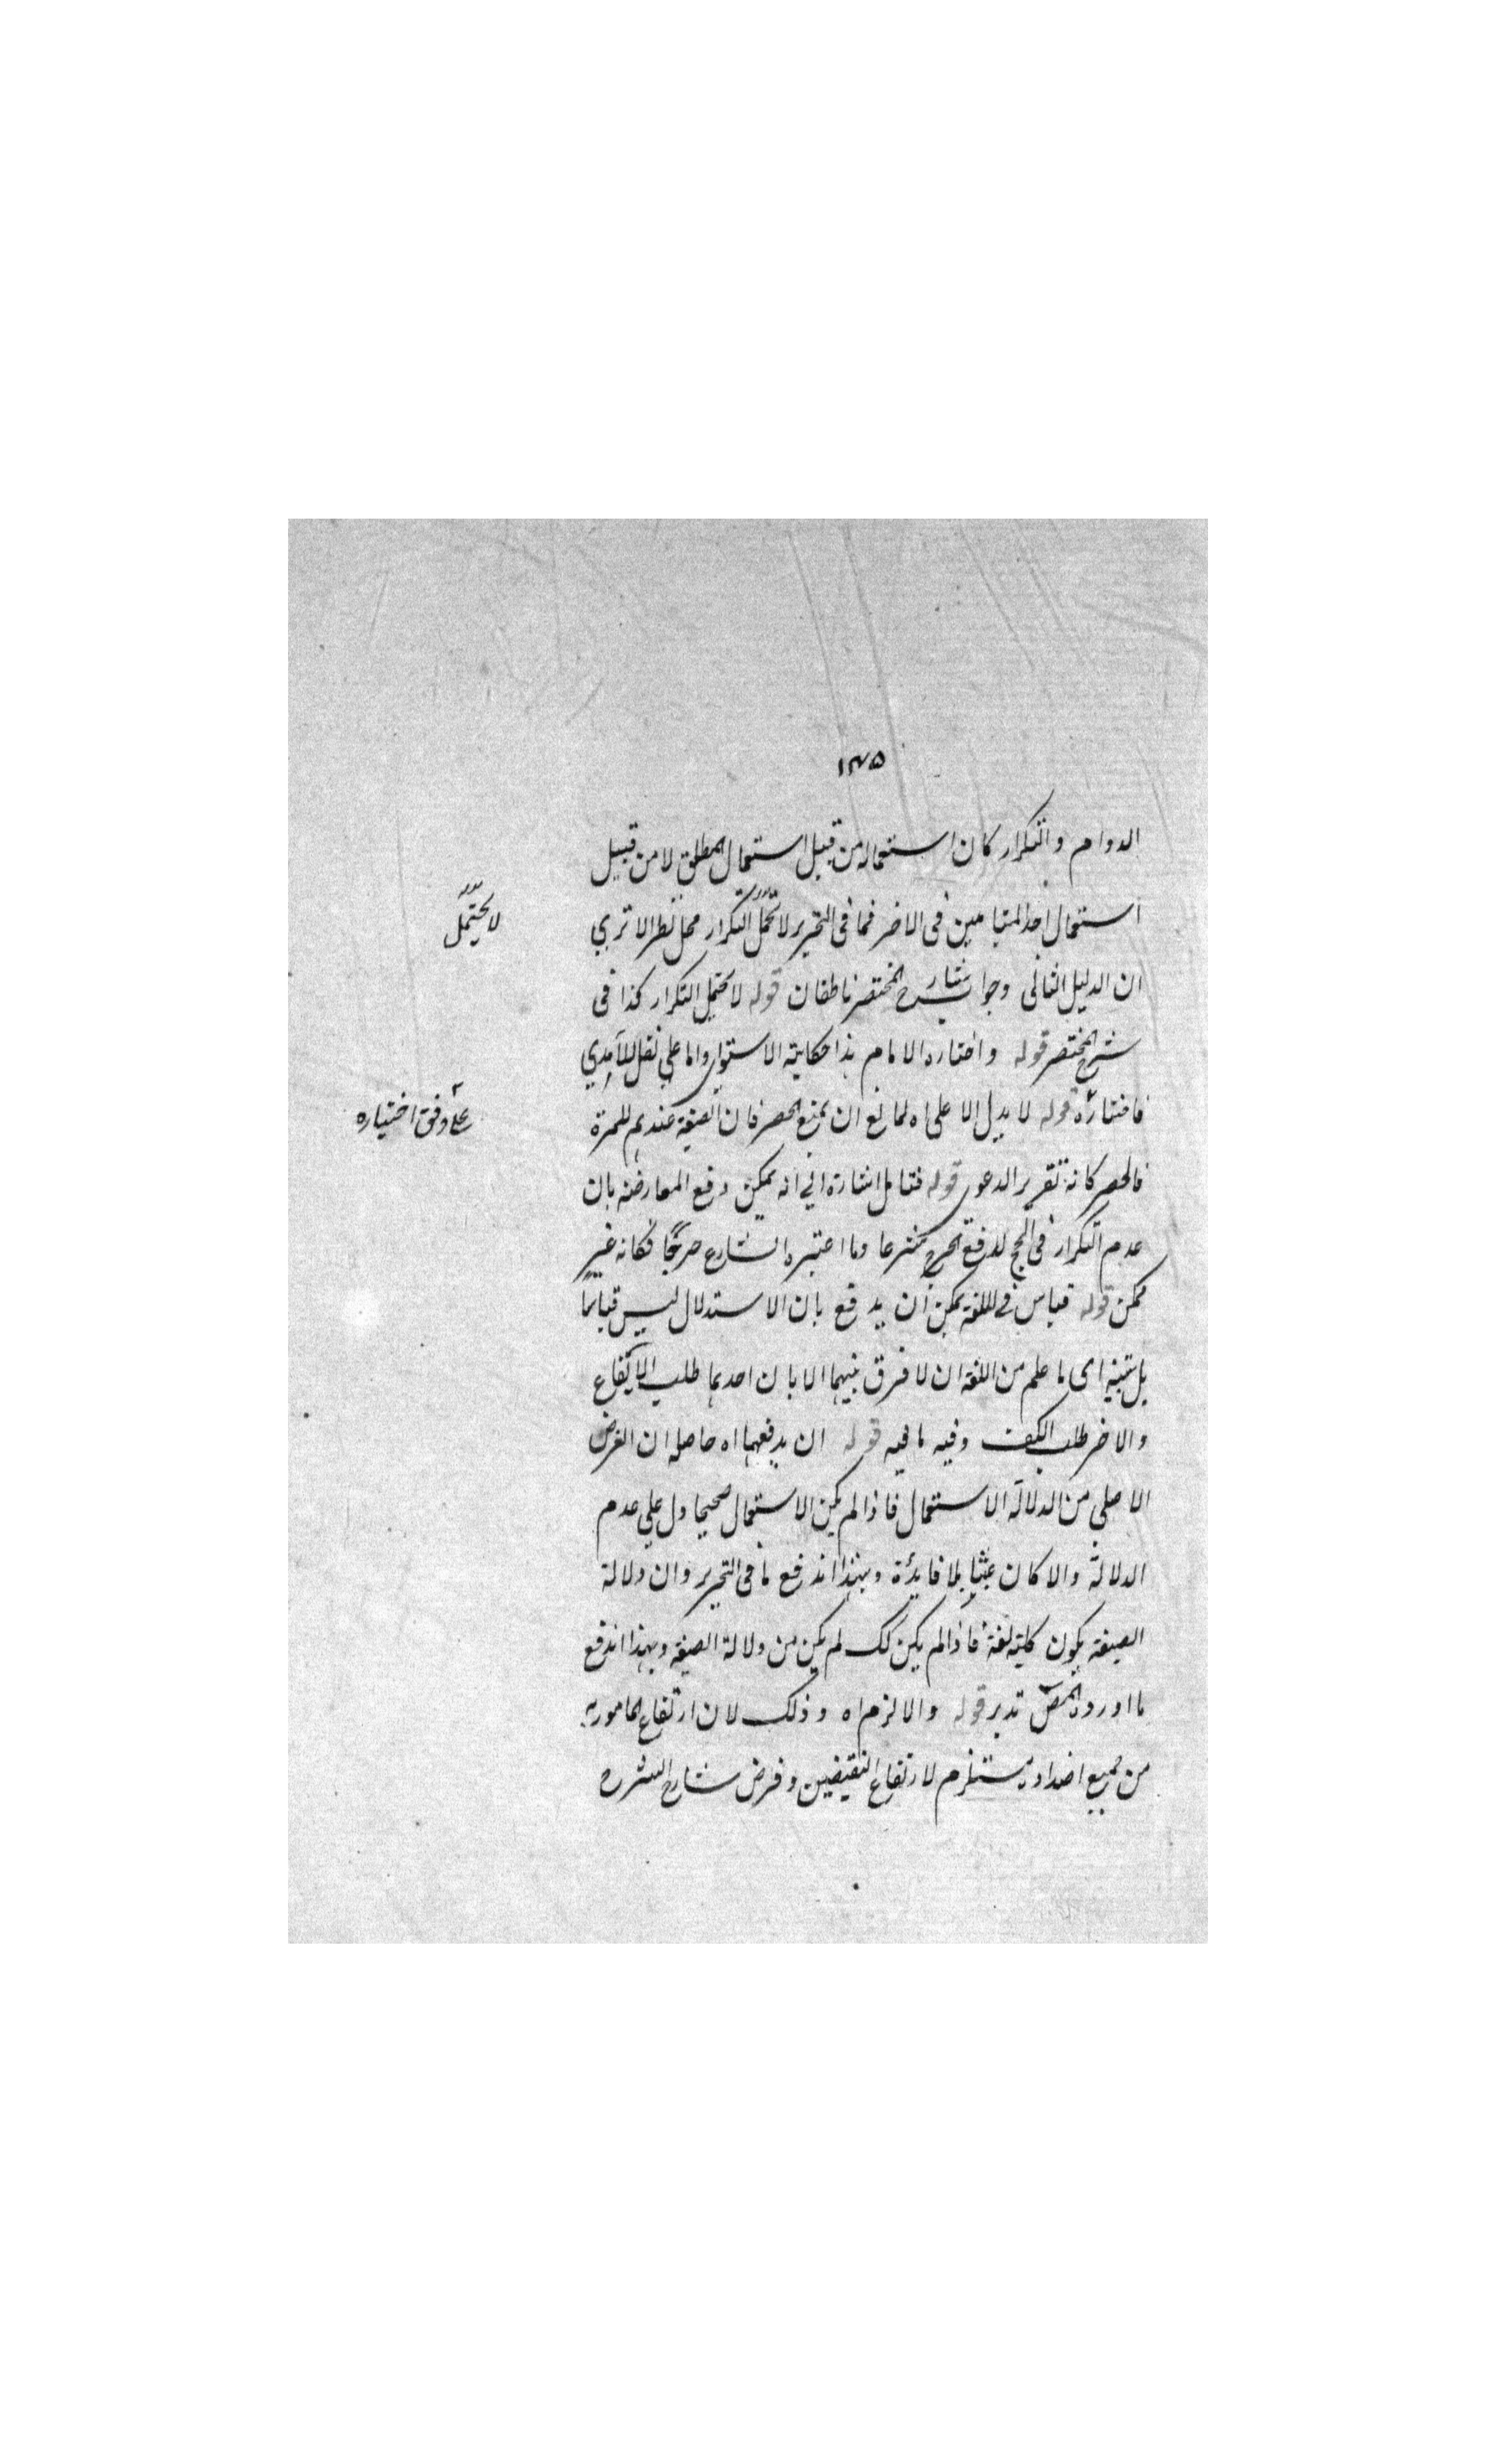 ١٣٥
الدوام والتكرار كان استعماله من قبيل استعمال المطلق لا من قبيل
استعمال احد المتباينين فى الاخر فما فى التحرير لا تحمل التكرار محل نظر الا تري
لا يحتمل
ان الدليل الثانى وجوا شارح المختصر ناطقان قوله لا يحتمل التكرار كذا فى
شرح المختصر قوله واختاره الامام هذا حكايته الاستوى واما على نقل للآمدي
فاختاره قوله لا يدل الا على اه لمانع ان يمنع الحصر فان الصيغة عندهم للمرة
على وفق اختياره
فالحصر كانه تقرير الدعوى قوله فتامل اشارة الي انه يمكن دفع المعارضه بان
عدم التكرار فى الحج لدفع الحرج شرعا وما اعتبره الشارع حرجا فكانه غير
ممكن قوله قياس فى اللغة يمكن ان يدفع بان الاستدلال ليس قياسا
بل تنبيه اى ما علم من اللغة ان لا فرق بينهما الا بان احدهما طلب الايقاع
والاخر طلب الكف وفيه ما فيه قوله ان يدفعهما اه حاصله ان الغرض
الاصلي من الدلالة الاستعمال فاذا لم يكن الاستعمال صحيحا دل على عدم
الدلالة والا كان عبثا بلا فايدة وبهذا اندفع ما فى التحرير وان دلالة
الصيغة يكون كلية لغة فاذا لم يكن كك لم يكن من دلالة الصيغة وبهذا اندفع
ما اورده المص تدبر قوله والا لزم اه وذلك لان ارتفاع المامور به
من جميع اضداده مستلزم لارتفاع النقيضين وفرض شارح الشرح